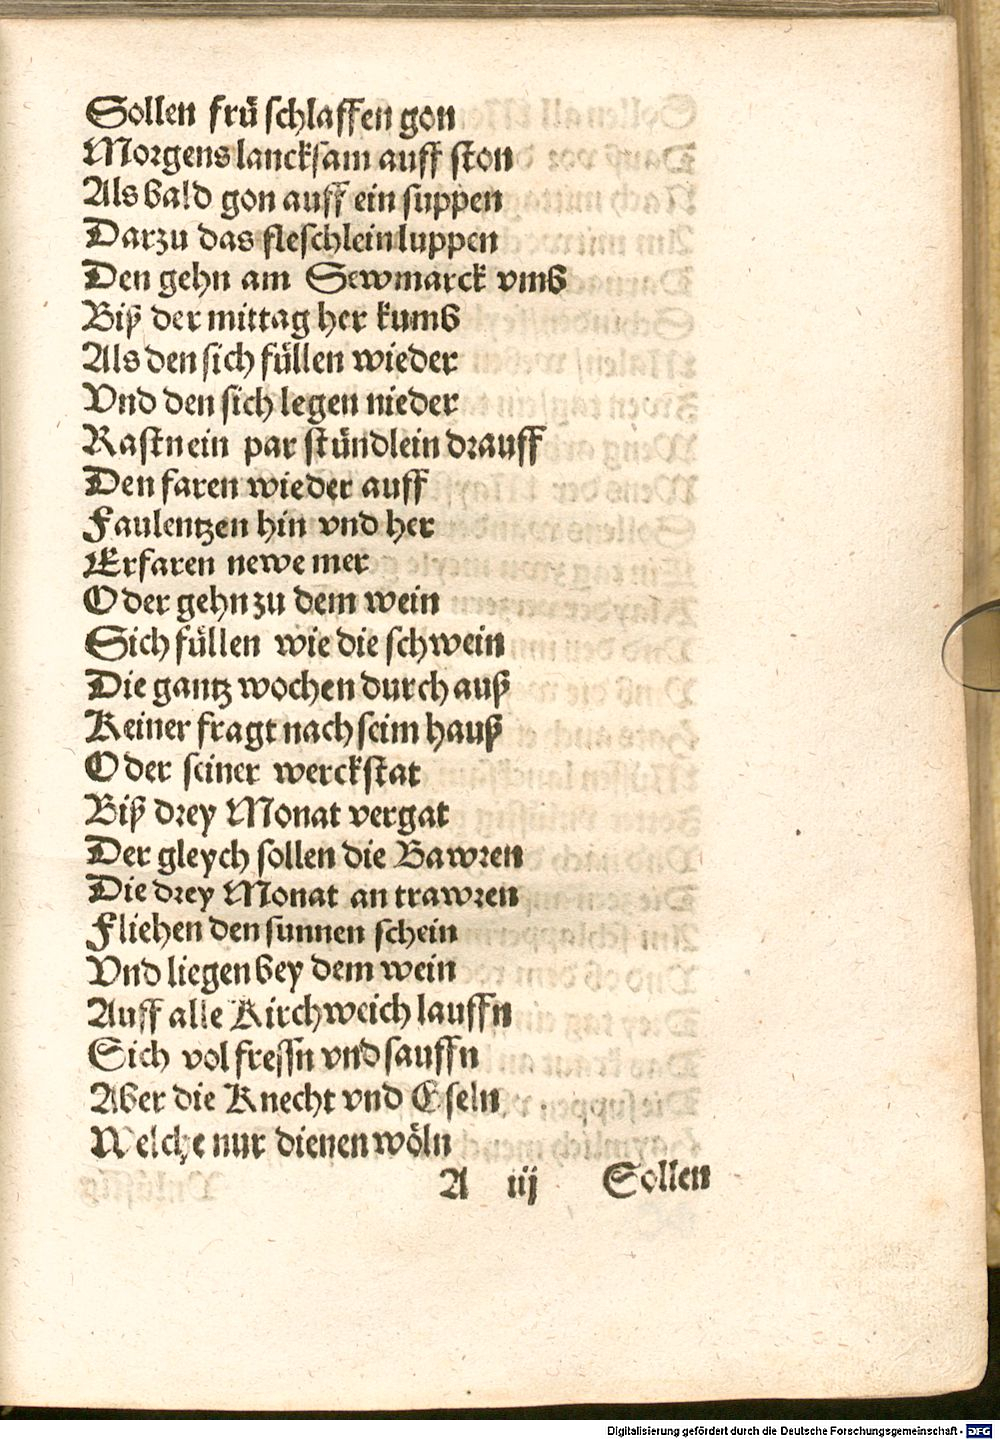 Sollen frü schlaffen gon
Morgens lancksam auff ston
Als bald gon auff ein suppen
Darzu das fleschlein luppen
Den gehn am Sewmarck vmb
Biß der mittag her kumb
Als den sich füllen wieder
Vnd den sich legen nieder
Rastn ein par stündlein drauff
Den faren wieder auff
Faulentzen hin vnd her
Erfaren newe mer
Oder gehn zu dem wein
Sich füllen wie die schwein
Die gantz wochen durch auß
Keiner fragt nach seim hauß
Oder seiner werckstat
Biß drey Monat vergat
Der gleych sollen die Bawren
Die drey Monat an trawren
Fliehen den sunnen schein
Vnd liegen bey dem wein
Auff alle Kirchweich lauffn
Sich vol fressn vnd sauffn
Aber die Knecht vnd Eseln
Welche nur dienen wöln
A iij Sollen
Digitalisierung gefördert durch die Deutsche Forschungsgemeinschaft - DFG